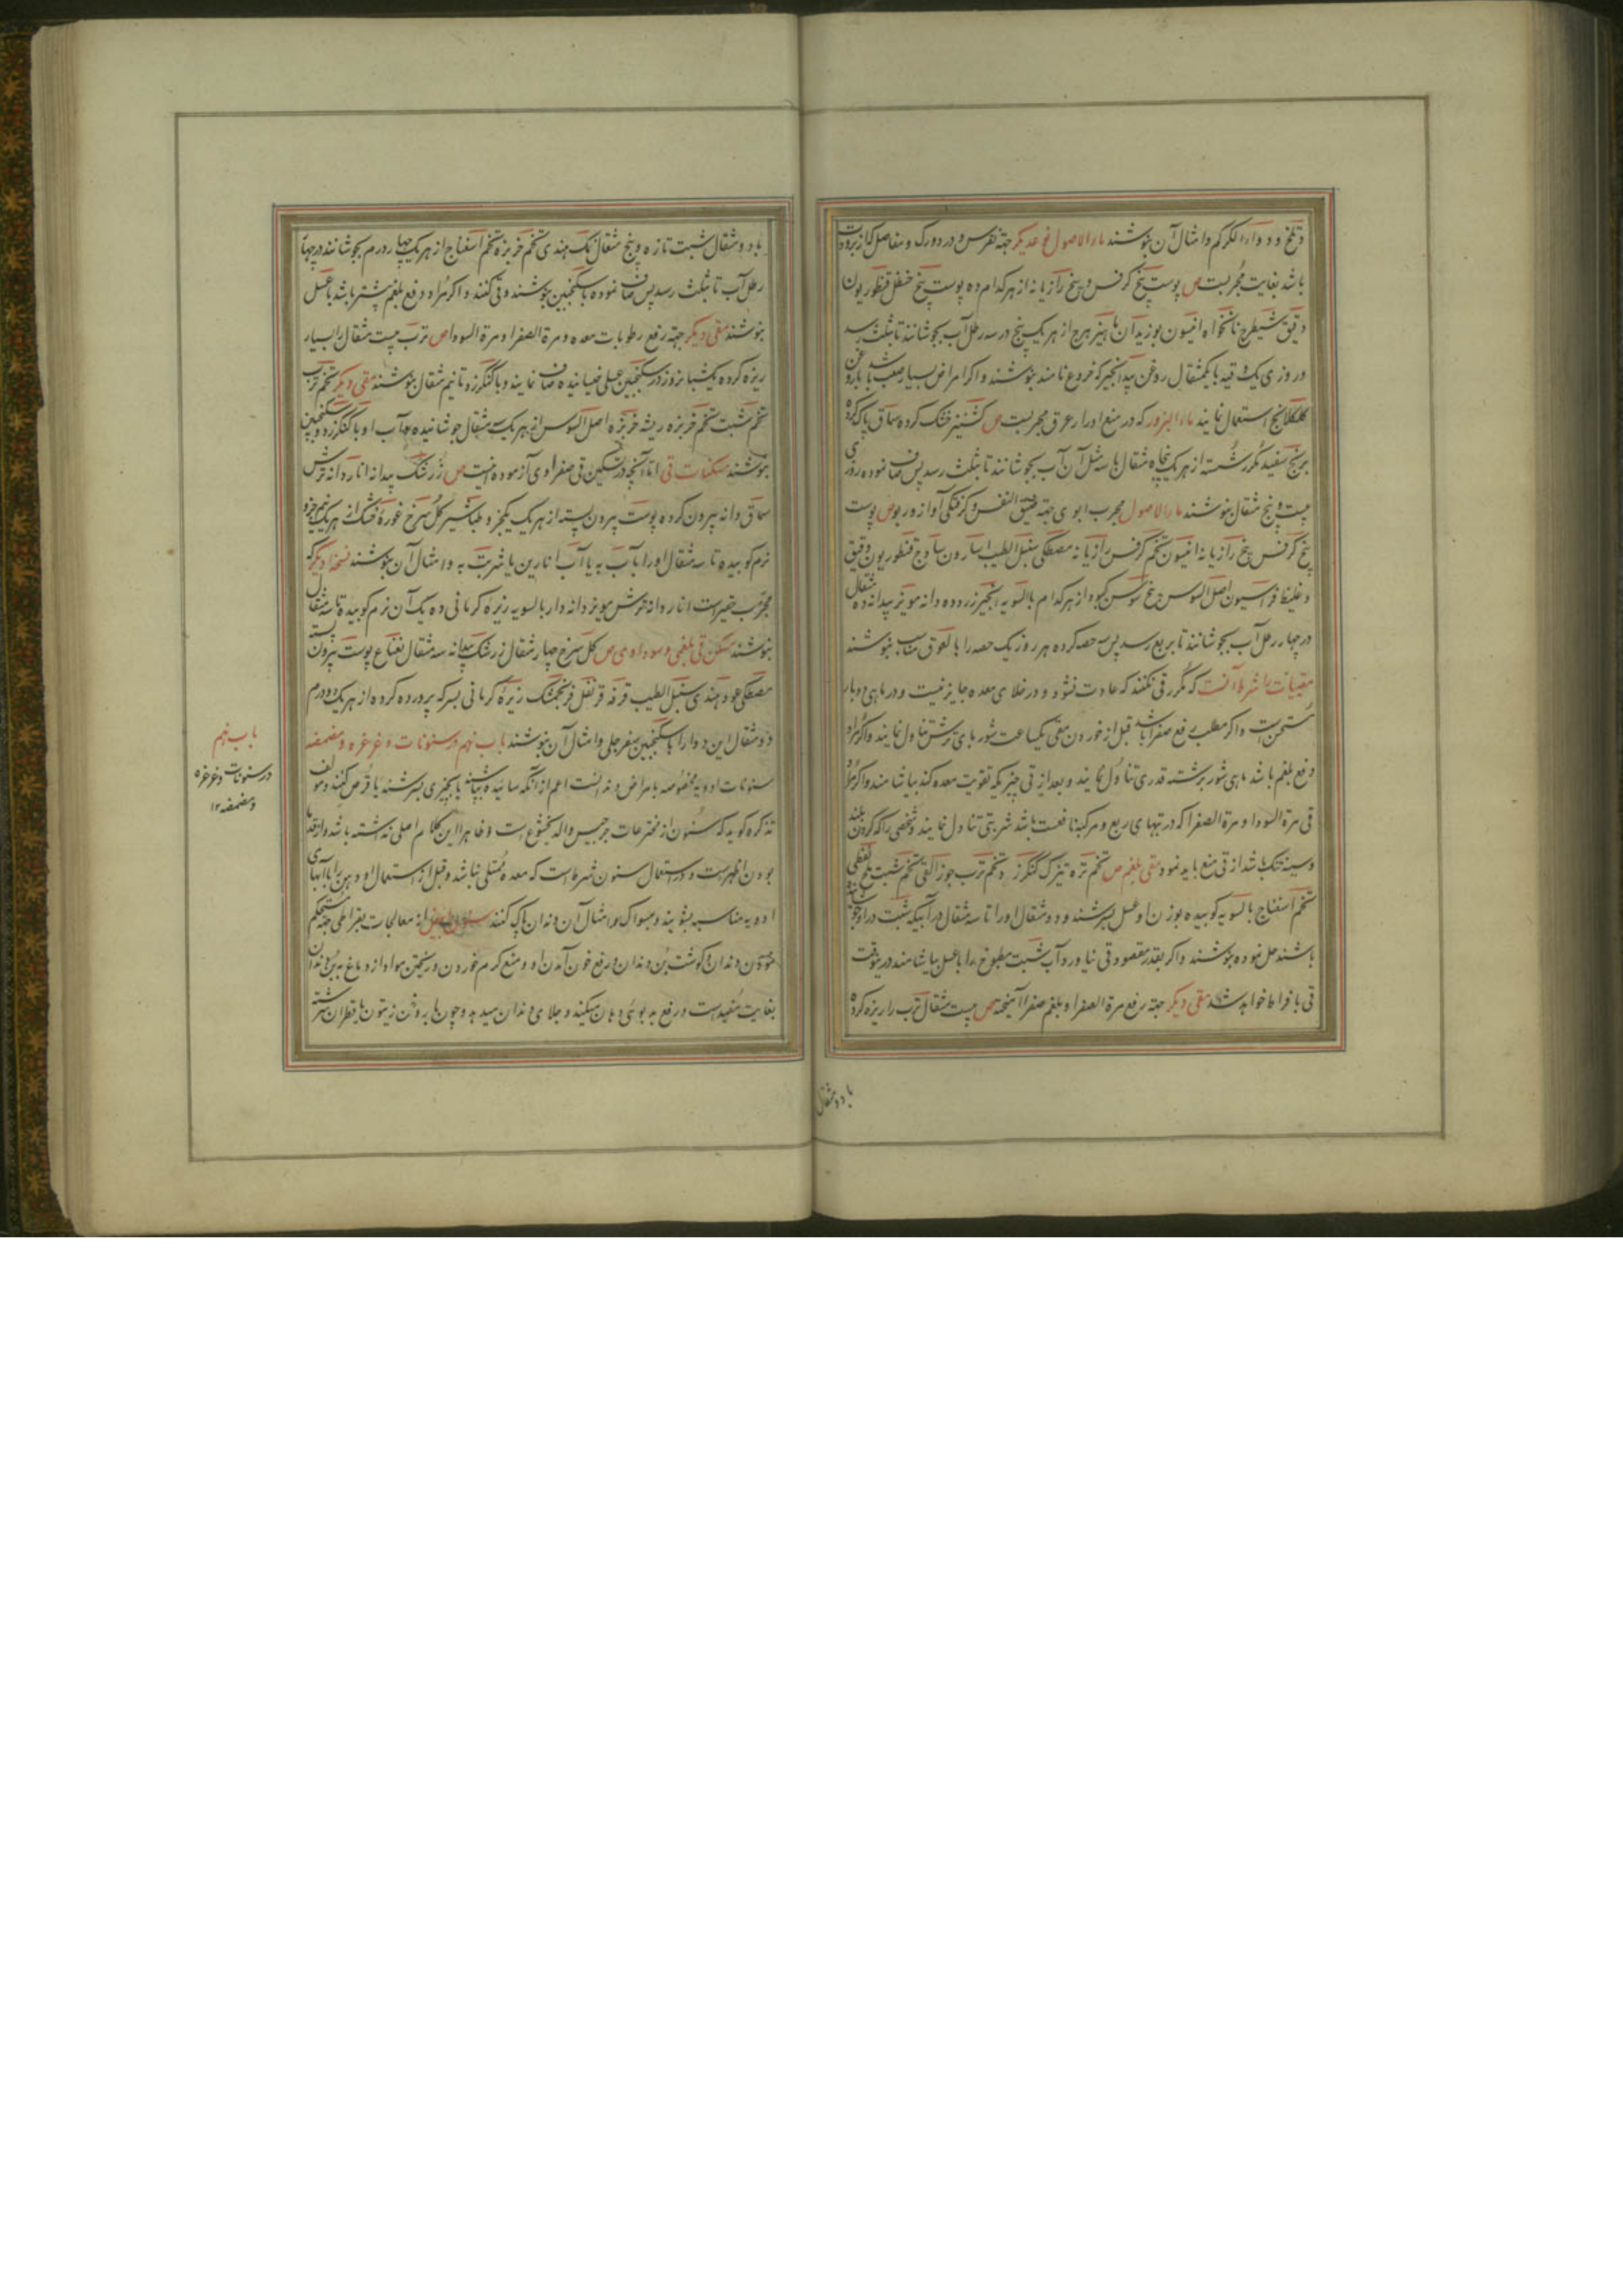 و تلخ و دوارالکرکم و امثال آن بنوشند ماءالاصول نوعدیکر جهة نقرس و درد ورک و مفاصل که از برودت
باشد بغایت مجربست ص پوست بیخ کرفس و بیخ رازیانه از هر کدام ده پوست بیخ حنظل قنطوریون
دقیق شیطرج نانخواه انیسون بوزیدان ماهیزهرج از هر یک پنج در سه رطل آب بجوشانند تا بثلث رسد
و روزی یک وقیه با یکمثقال روغن بیدانجیر که خروع نامند بنوشند و اکر امراض بسیار صعب باشد با روغن
کلکلانج استعمال نمایند ماءالبزور که در منع ادرار عرق مجربست ص کشنیز خشک کرده سماق پاک کرده
برنج سفید مکرر شسته از هر یک پنجاه مثقال با سه مثل آن آب بجوشانند تا بثلث رسد پس صاف نموده روزی
بیست و پنج مثقال بنوشند ماءالاصول مجرب ابوی جهة ضیق النفس و کرفتکی آواز و ربو ص پوست
بیخ کرفس بیخ رازیانه انیسون تخم کرفس رازیانه مصطکی سنبل الطیب اسارون سادج قنطوریون دقیق
و غلیظ فراسیون اصل السوس بیخ سوسن کبود از هر کدام بالسویه انجیر زرد ده دانه مویز بیدانه ده مثقال
در چهار رطل آب بجوشانند تا بربع رسد پس سه حصه کرده هر روز یک حصه را با لعوق مناسب بنوشند
مقییات را شرط آنست که مکرر قی نکنند که عادت نشود و در خلای معده جایز نیست و در ماهی دوبار
مستحسن است و اکر مطلب رفع صفرا باشد قبل از خوردن مقی بیکساعت شوربای ترش تناول نمایند و اکر مراد
دفع بلغم باشد ماهی شور برشته قدری تناول نمایند و بعد از قی چیزیکه تقویت معده کند بیاشامند و اکر مراد
قی مرة السودا و مرة الصفرا که در تبهای ربع و مرکبه نافعست باشد شربتی تناول نمایند و شخصی را که کردن بلند
و سینه تنک باشد از قی منع باید نمود مقی بلغم ص تخم تره تیزک کنکرزد تخم ترب جوزالقی تخم شبت ملح نفطی
تخم اسفناج بالسویه کوبیده بوزن او عسل بسرشند و دو مثقال او را تا سه مثقال در آبیکه شبت در او جوشانده
باشند حل نموده بنوشند و اکر بقدر مقصود قی نیاورد آب شبت مطبوخ را با عسل بیاشامند در ینوقت
قی بافراط خواهد شد مقی دیکر جهة رفع مرة الصفرا و بلغم صفرا آمیخته ص بیست مثقال ترب را ریزه کرده
با دو مثقال
با دو مثقال شبت تازه و پنج مثقال نمک هندی تخم خربزه تخم اسفناج از هر یک چهار درم بجوشانند در چهار
رطل آب تا بثلث رسد پس صاف نموده با سکنجبین بنوشند و قی کنند و اکر مراد دفع بلغم بیشتر باشد با عسل
بنوشند مقی دیکر جهة رفع رطوبات معده و مرة الصفرا و مرة السودا ص ترب بیست مثقال را بسیار
ریزه کرده یکشبانروز در سکنجبین عسلی خیسانیده صاف نمایند و با کنکرزد تا نیم مثقال بنوشند مقی دیکر تخم ترب
تخم شبت تخم خربزه ریشه خربزه اصل السوس از هر یک سه مثقال جوشانیده با آب او با کنکرزد و سکنجبین
بنوشند مسکنات قی اما آنچه در تسکین قی صفراوی آزموده اینست ص زرشک بیدانه انار دانه ترش
سماق دانه بیرون کرده پوست بیرون پسته از هر یک یکجزو طباشیر کل سرخ غوره خشک از هر یک نیم جزو
نرم کوبیده تا سه مثقال او را با آب به یا آب انارین یا شربت به و امثال آن بنوشند نسخه دیکر که
مجرب حقیر است انار دانه ترش مویز دانه دار بالسویه زیره کرمانی ده یک آن نرم کوبیده تا سه مثقال
بنوشند مسکن قی بلغمی و سوداوی ص کل سرخ چهار مثقال زرشک بیدانه سه مثقال نعناع پوست بیرون پسته
مصطکی عود هندی سنبل الطیب قرفه قرنفل فرنجمشک زیره کرمانی بسرکه پرورده کرده از هر یک دو درم
دو مثقال این دوا را با سکنجبین سفرجلی و امثال آن بنوشند باب نهم در سنونات و غرغره و مضمضه
سنونات ادویه مخصوصه بامراض دندانست اعم از آنکه سائیده بپاشند یا بچیزی بسرشند یا قرص کنند و مولف
تذکره کوید که سنون از مخترعات جرجیس والد بختیشوع است و ظاهرا این کلام اصلی نداشته باشد و از قدما
بودن اظهر است و در استعمال سنون شرط است که معده ممتلی نباشد و قبل از استعمال او دهن را با آبهای
ادویه مناسبه بشویند و بمسواک و امثال آن دندان پاک کنند سنون ابیض از معالجات بقراطی جهة استحکام
عمود دندان و کوشت بن دندان و رفع خون آمدن او و منع کرم خوردن و ریختن مواد از دماغ به بن دندان
بغایت مفید است و رفع بدبوئی دهان میکنید و جلای دندان میدهد و چون با روغن زیتون یا قطران سرشته
باب نهم
در سنونات و غرغره
و مضمضه ۱۲